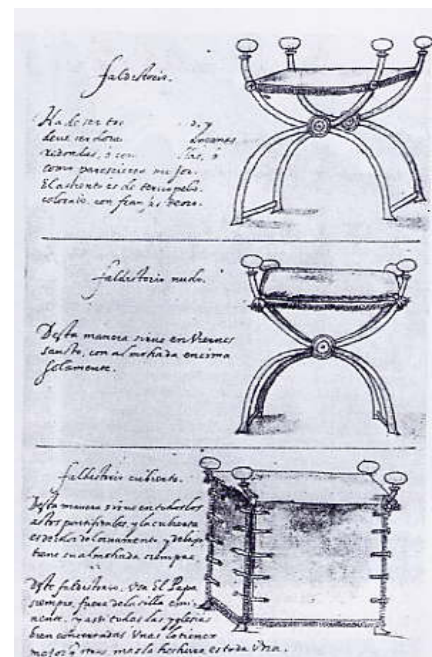 faldistorio.
Ha de ser
deue ser dora
redondas, o con
como paresciere mejor.
El asiento es de terciopelo
colorado, con franjas de oro.
faldistorio nudo.
Desta manera sirue en Viernes
sancto, con almohada encima
solamente.
faldistorio cubierto.
Desta manera sirue en todos los
actos pontificales, y la cubierta
es del color del ornamento, y debajo
tiene su almohada siempre.
Deste faldistorio, usa El Papa
siempre, fuera de la silla
y asi todas las yglesias
bien concertadas Unas la tienen
mejor q̃ otras, mas la hechura es toda Una.